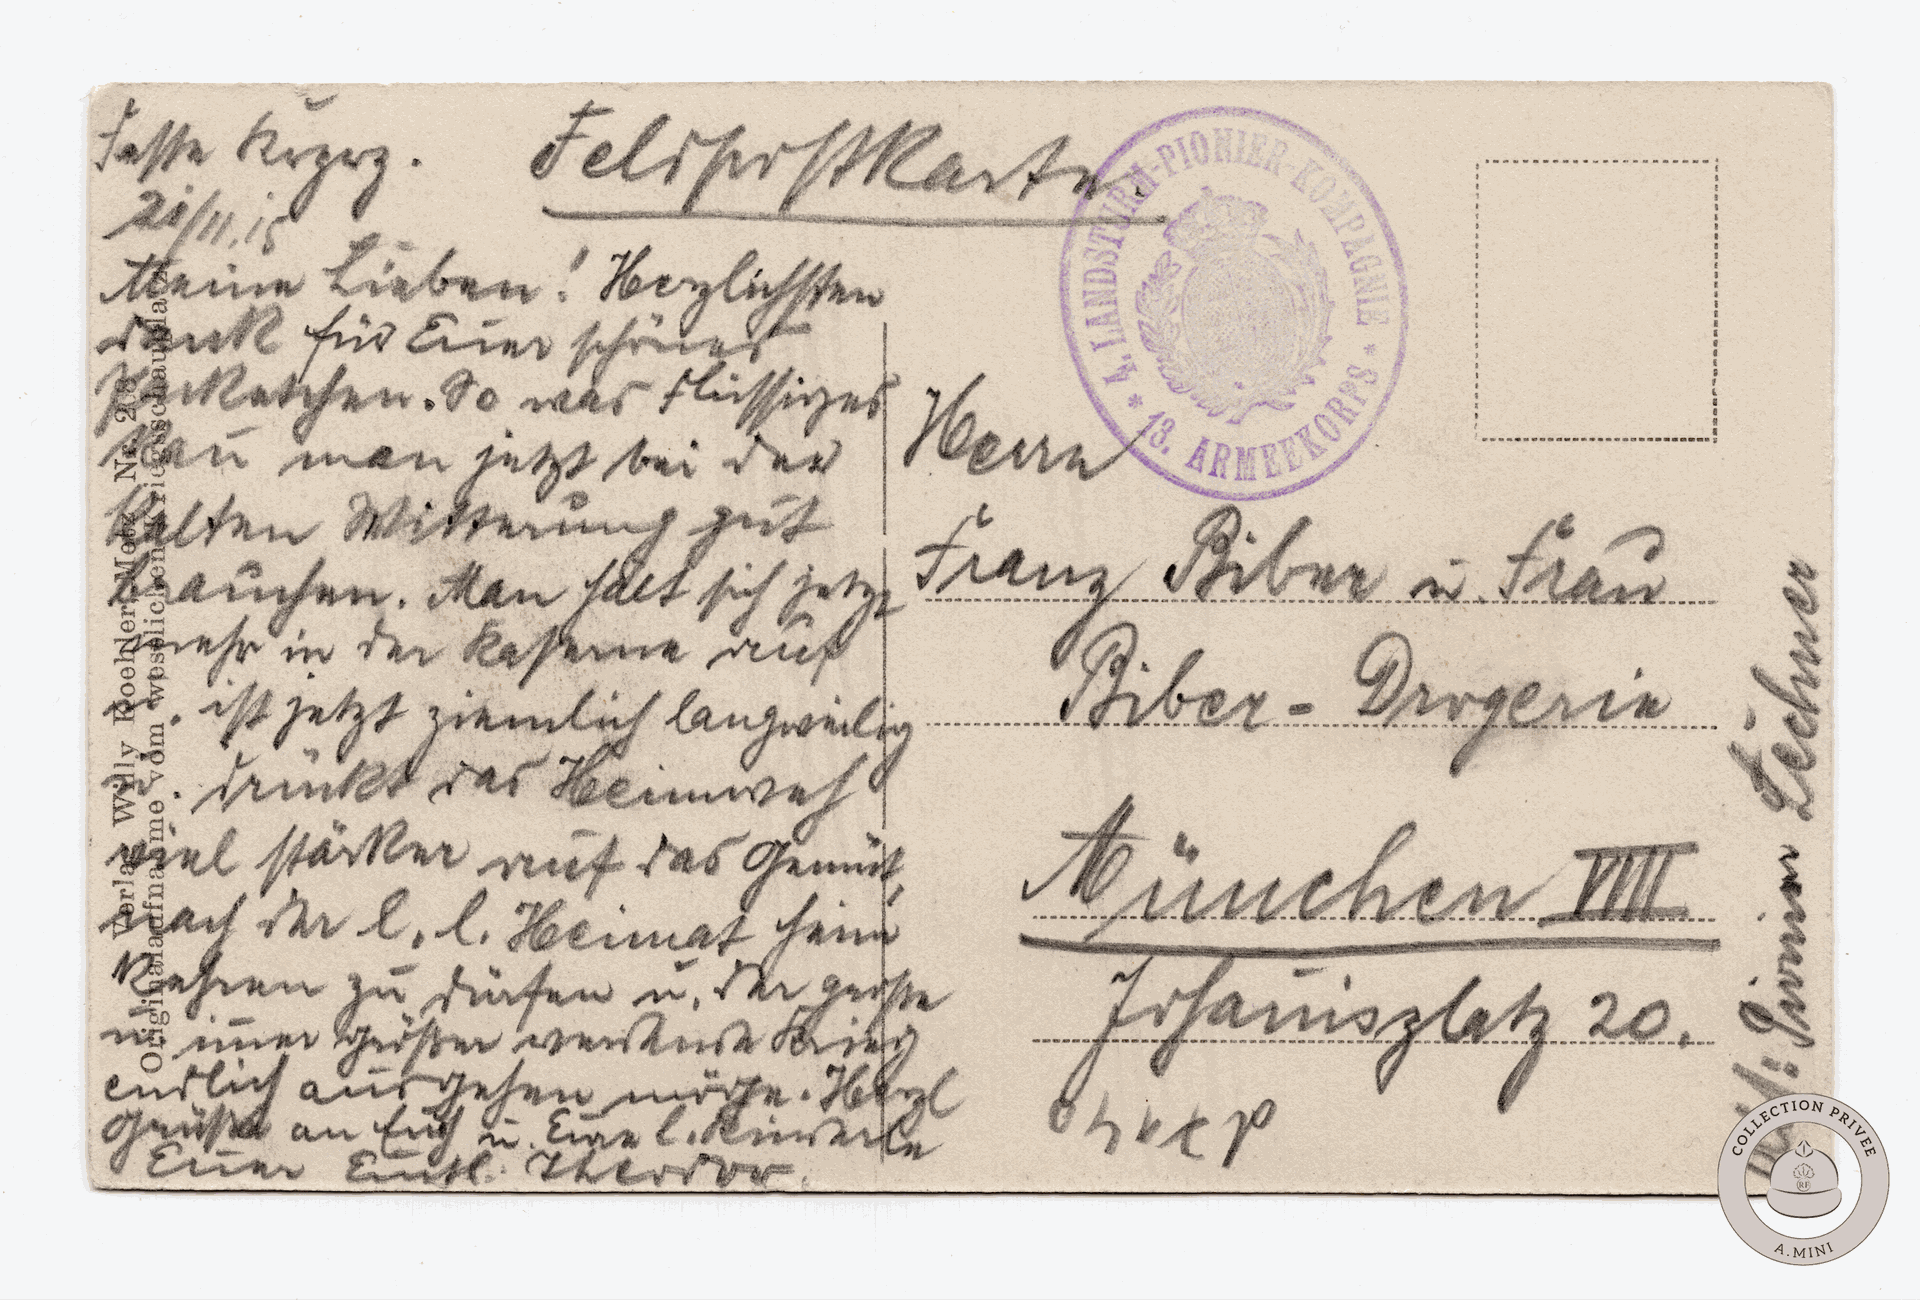 Feste Krzprz.
21/11.15
Feldpostkarte.
Meine Lieben! Herzlichsten
Dank für Euer schönes
Packetchen. So was Flüssiges
kañ man jetzt bei der
kalten Witterung gut
brauchen. Man hält sich jetzt
mehr in der Kaserne auf
u. ist jetzt ziemlich langweilig
u. drückt das Heimweh
viel stärker auf das Gemüt,
nach der l. l. Heimat heim
kehren zu dürfen u. der große
u. im̄er größer werdende Krieg
endlich ausgehen möge. Herzl
Grüße an Euch u. Eure l. Kinderle
Euer Theodor.
Verlag Willy Koehler, Metz Nr. 28
Originalaufnahme vom westlichen Kriegsschauplatz
K. LANDSTURM-PIONIER-KOMPAGNIE
* 13. ARMEEKORPS *
Herrn
Franz Biber u. Frau
Biber-Drogerie
München VIIII
Johanniszplatz 20.
Pionier Lechner
COLLECTION PRIVEE
RF
A.MINI